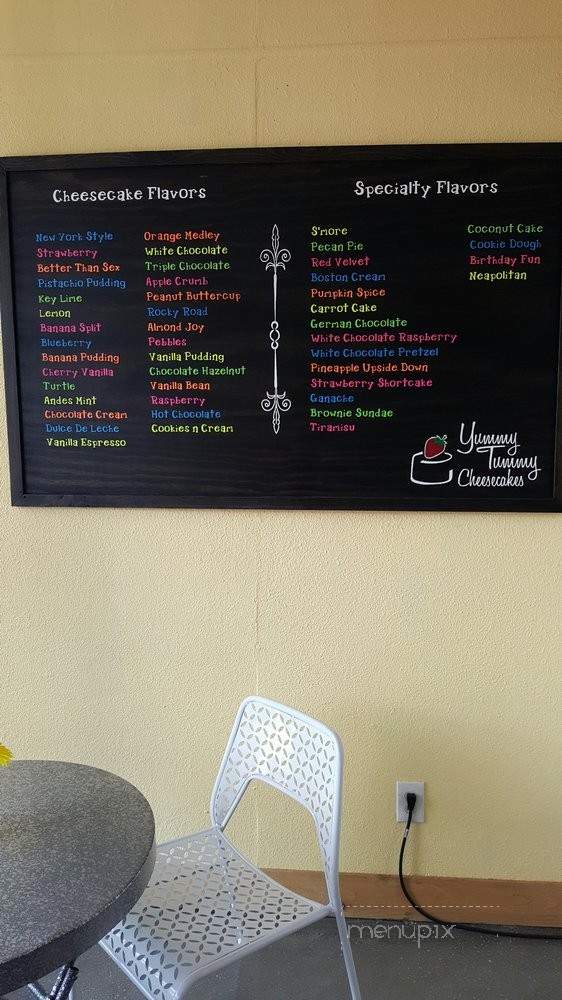 Cheesecake Flavors
New York Style
Strawberry
Better Than Sex
Pistachio Pudding
Key Lime
Lemon
Banana Split
Blueberry
Banana Pudding
Cherry Vanilla
Turtle
Andes Mint
Chocolate Cream
Dulce De Leche
Vanilla Espresso
Orange Medley
White Chocolate
Triple Chocolate
Apple Crumb
Peanut Buttercup
Rocky Road
Almond Joy
Pebbles
Vanilla Pudding
Chocolate Hazelnut
Vanilla Bean
Raspberry
Hot Chocolate
Cookies n Cream
Specialty Flavors
S'more
Pecan Pie
Red Velvet
Boston Cream
Pumpkin Spice
Carrot Cake
German Chocolate
White Chocolate Raspberry
White Chocolate Pretzel
Pineapple Upside Down
Strawberry Shortcake
Ganache
Brownie Sundae
Tiramisu
Coconut Cake
Cookie Dough
Birthday Fun
Neapolitan
Yummy
Tummy
Cheesecakes
menupix